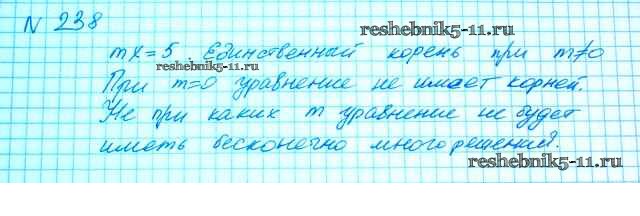 N 238
reshebnik5-11.ru
mx=5. Единственный корень при m≠0
reshebnik5-11.ru
При m=0 уравнение не имеет корней.
Не при каких m уравнение не будет
иметь бесконечно много решений.
reshebnik5-11.ru